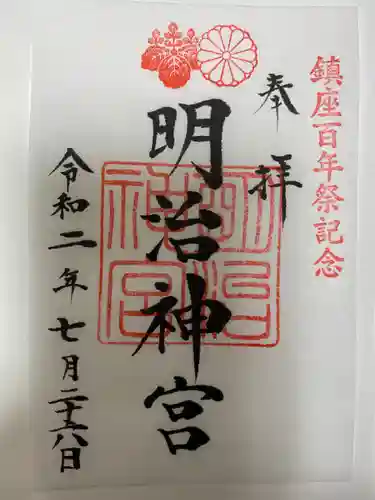 鎮座百年祭記念
奉拝
明治神宮
明治神宮
令和二年七月二十六日